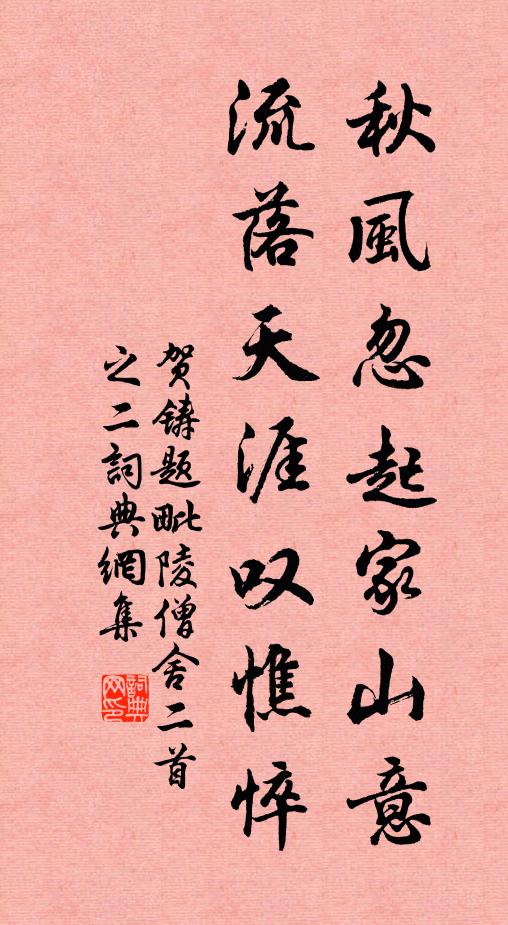 秋風忽起家山意
流落天涯叹憔悴
贺鑄题毗陵僧舍二首
之二詞典網集
詞典
网印